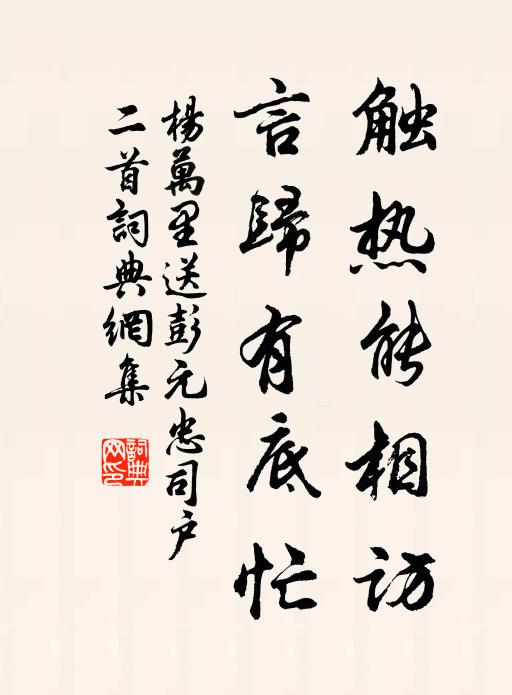 触热能相访
言歸有底忙
楊萬里送彭元忠司户
二首詞典網集
詞典網印